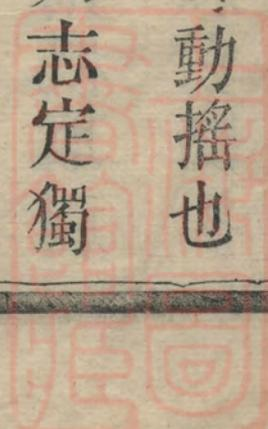 動搖也
志定獨